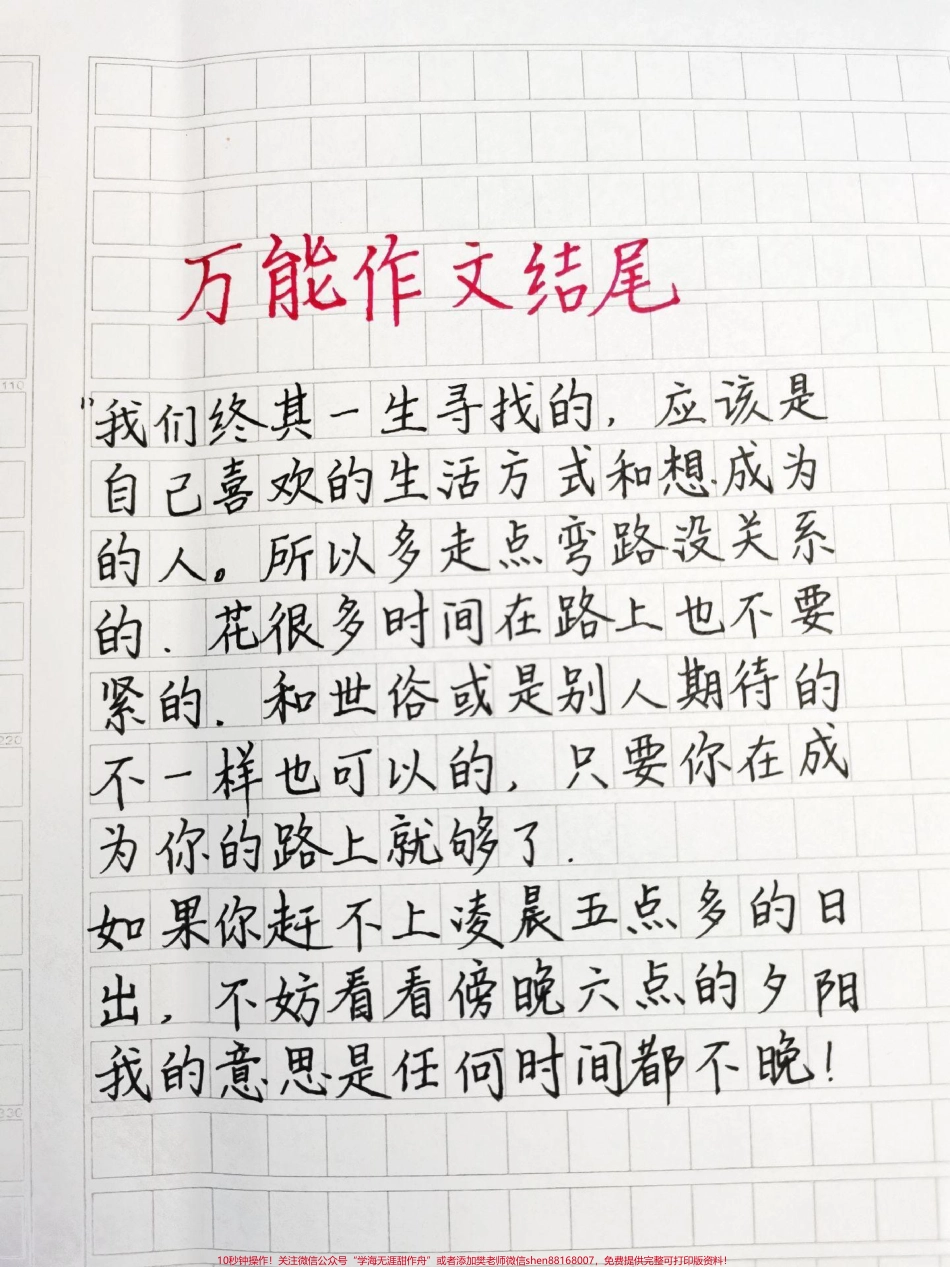 万能作文结尾
110
"我们终其一生寻找的，应该是
自己喜欢的生活方式和想.成为
的人。所以多走点弯路没关系
的.花很多时间在路上也不要
紧的.和世俗或是别人期待的
220
不一样也可以的，只要你在成
为你的路上就够了.
如果你赶不上凌晨五点多的日
出，不妨看看傍晚六点的夕阳
我的意思是任何时间都不晚！
330
10秒钟操作！关注微信公众号“学海无涯甜作舟”或者添加樊老师微信shen88168007，免费提供完整可打印版资料！